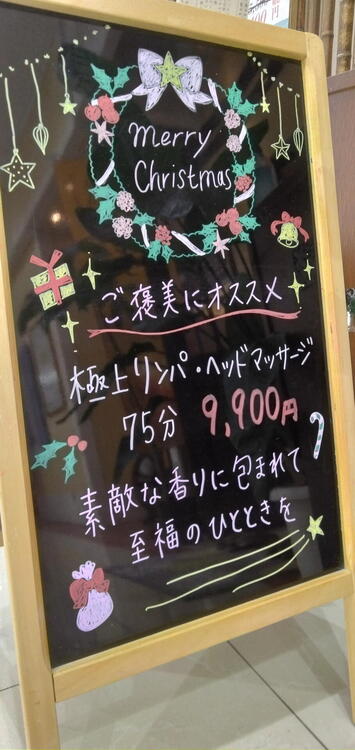 merry
Christmas
ご褒美にオススメ
極上リンパ・ヘッドマッサージ
75分 9,900円
素敵な香りに包まれて
至福のひとときを